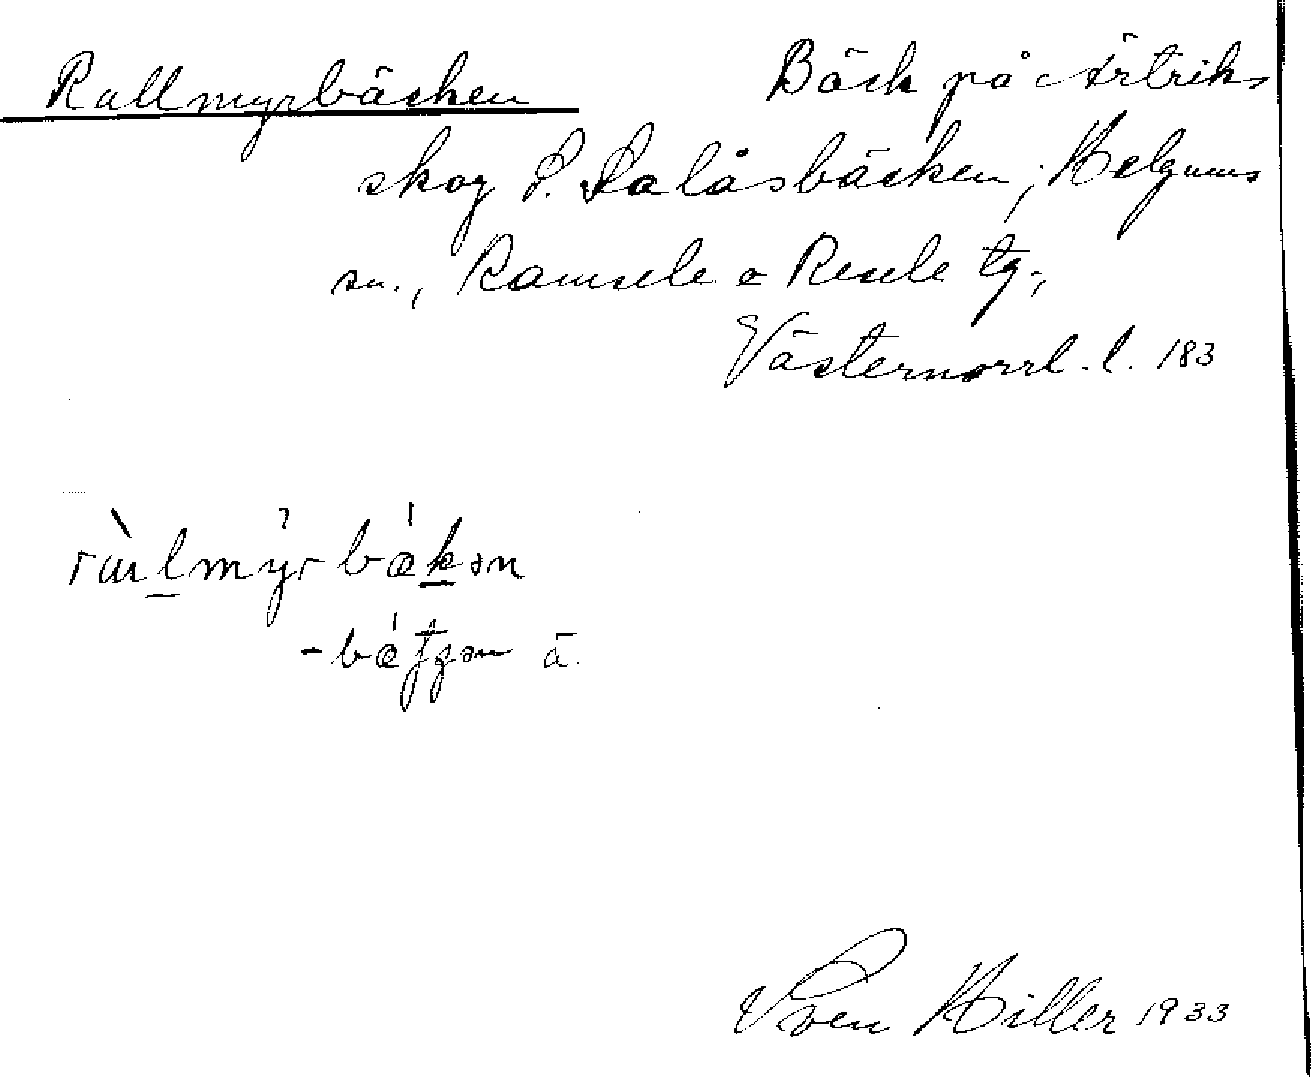 Rallmyrbäcken Bäck på Ärtriks
skog S. Salåsbäcken; Helgums
sn., Ramsele o Resele tg.,
Västernorrl. l. 183
bǽkən
ä.
Sven Hiller 1933